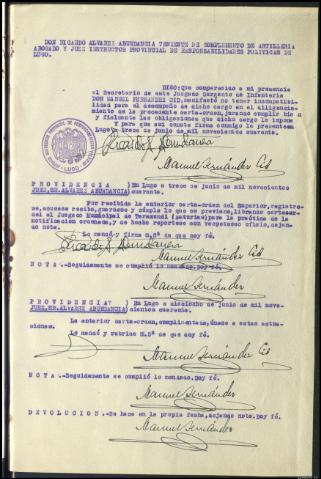 DON RICARDO ALVAREZ ABUNDANCIA TENIENTE DE COMPLEMENTO DE ARTILLERIA
ABOGADO Y JUEZ INSTRUCTOR PROVINCIAL DE RESPONSABILIDADES POLITICAS DE
LUGO.
DIGO: Que comparecido a mi presencia
el Secretario de este Juzgado Sargento de Infanteria
DON MANUEL FERNANDEZ CID, manifestó no tener incompatibi-
lidad para el desempeño de dicho cargo en el diligencia-
miento de la precedente carta-orden, jurando cumplir bien
y fielmente las obligaciones que dicho cargo le impone
Y para que así conste firma conmigo la presente en
Lugo a trece de junio de mil novecientos cuarenta.
Ricardo A. Abundancia
Manuel Fernández Cid
PROVIDENCIA) En Lugo a trece de junio de mil novecientos
JUEZ.SR.ALVAREZ ABUNDANCIA) cuarenta.
Por recibida la anterior carta-orden del Superior, regístre-
se, acusese recibo, guardese y cumpla lo que se previene, librando carta-or-
den al Juzgado Municipal de Taramundi (Asturias) para la práctica de la
notificacion ordenada, y de hecho reportese con respetuoso oficio, dejan-
do nota.
Lo mandó y firma S.Sª de que doy fé.
Ricardo A. Abundancia
Manuel Fernández Cid
NOTA.-Seguidamente se cumplió lo mandado. Doy fé.
Manuel Fernández
PROVIDENCIA) En Lugo a dieciocho de junio de mil nove-
JUEZ.SR.ALVAREZ ABUNDANCIA) cientos cuarenta.
La anterior carta-orden, cumplimentada, únase a estas actua-
ciones.
Lo mandó y rubrica S.Sª de que doy fé.
Manuel Fernández Cid
NOTA.-Seguidamente se cumplió lo mandado. Doy fé.
Manuel Fernández
DEVOLUCION.-Se hace en la propia fecha, dejando nota. Doy fé.
Manuel Fernández